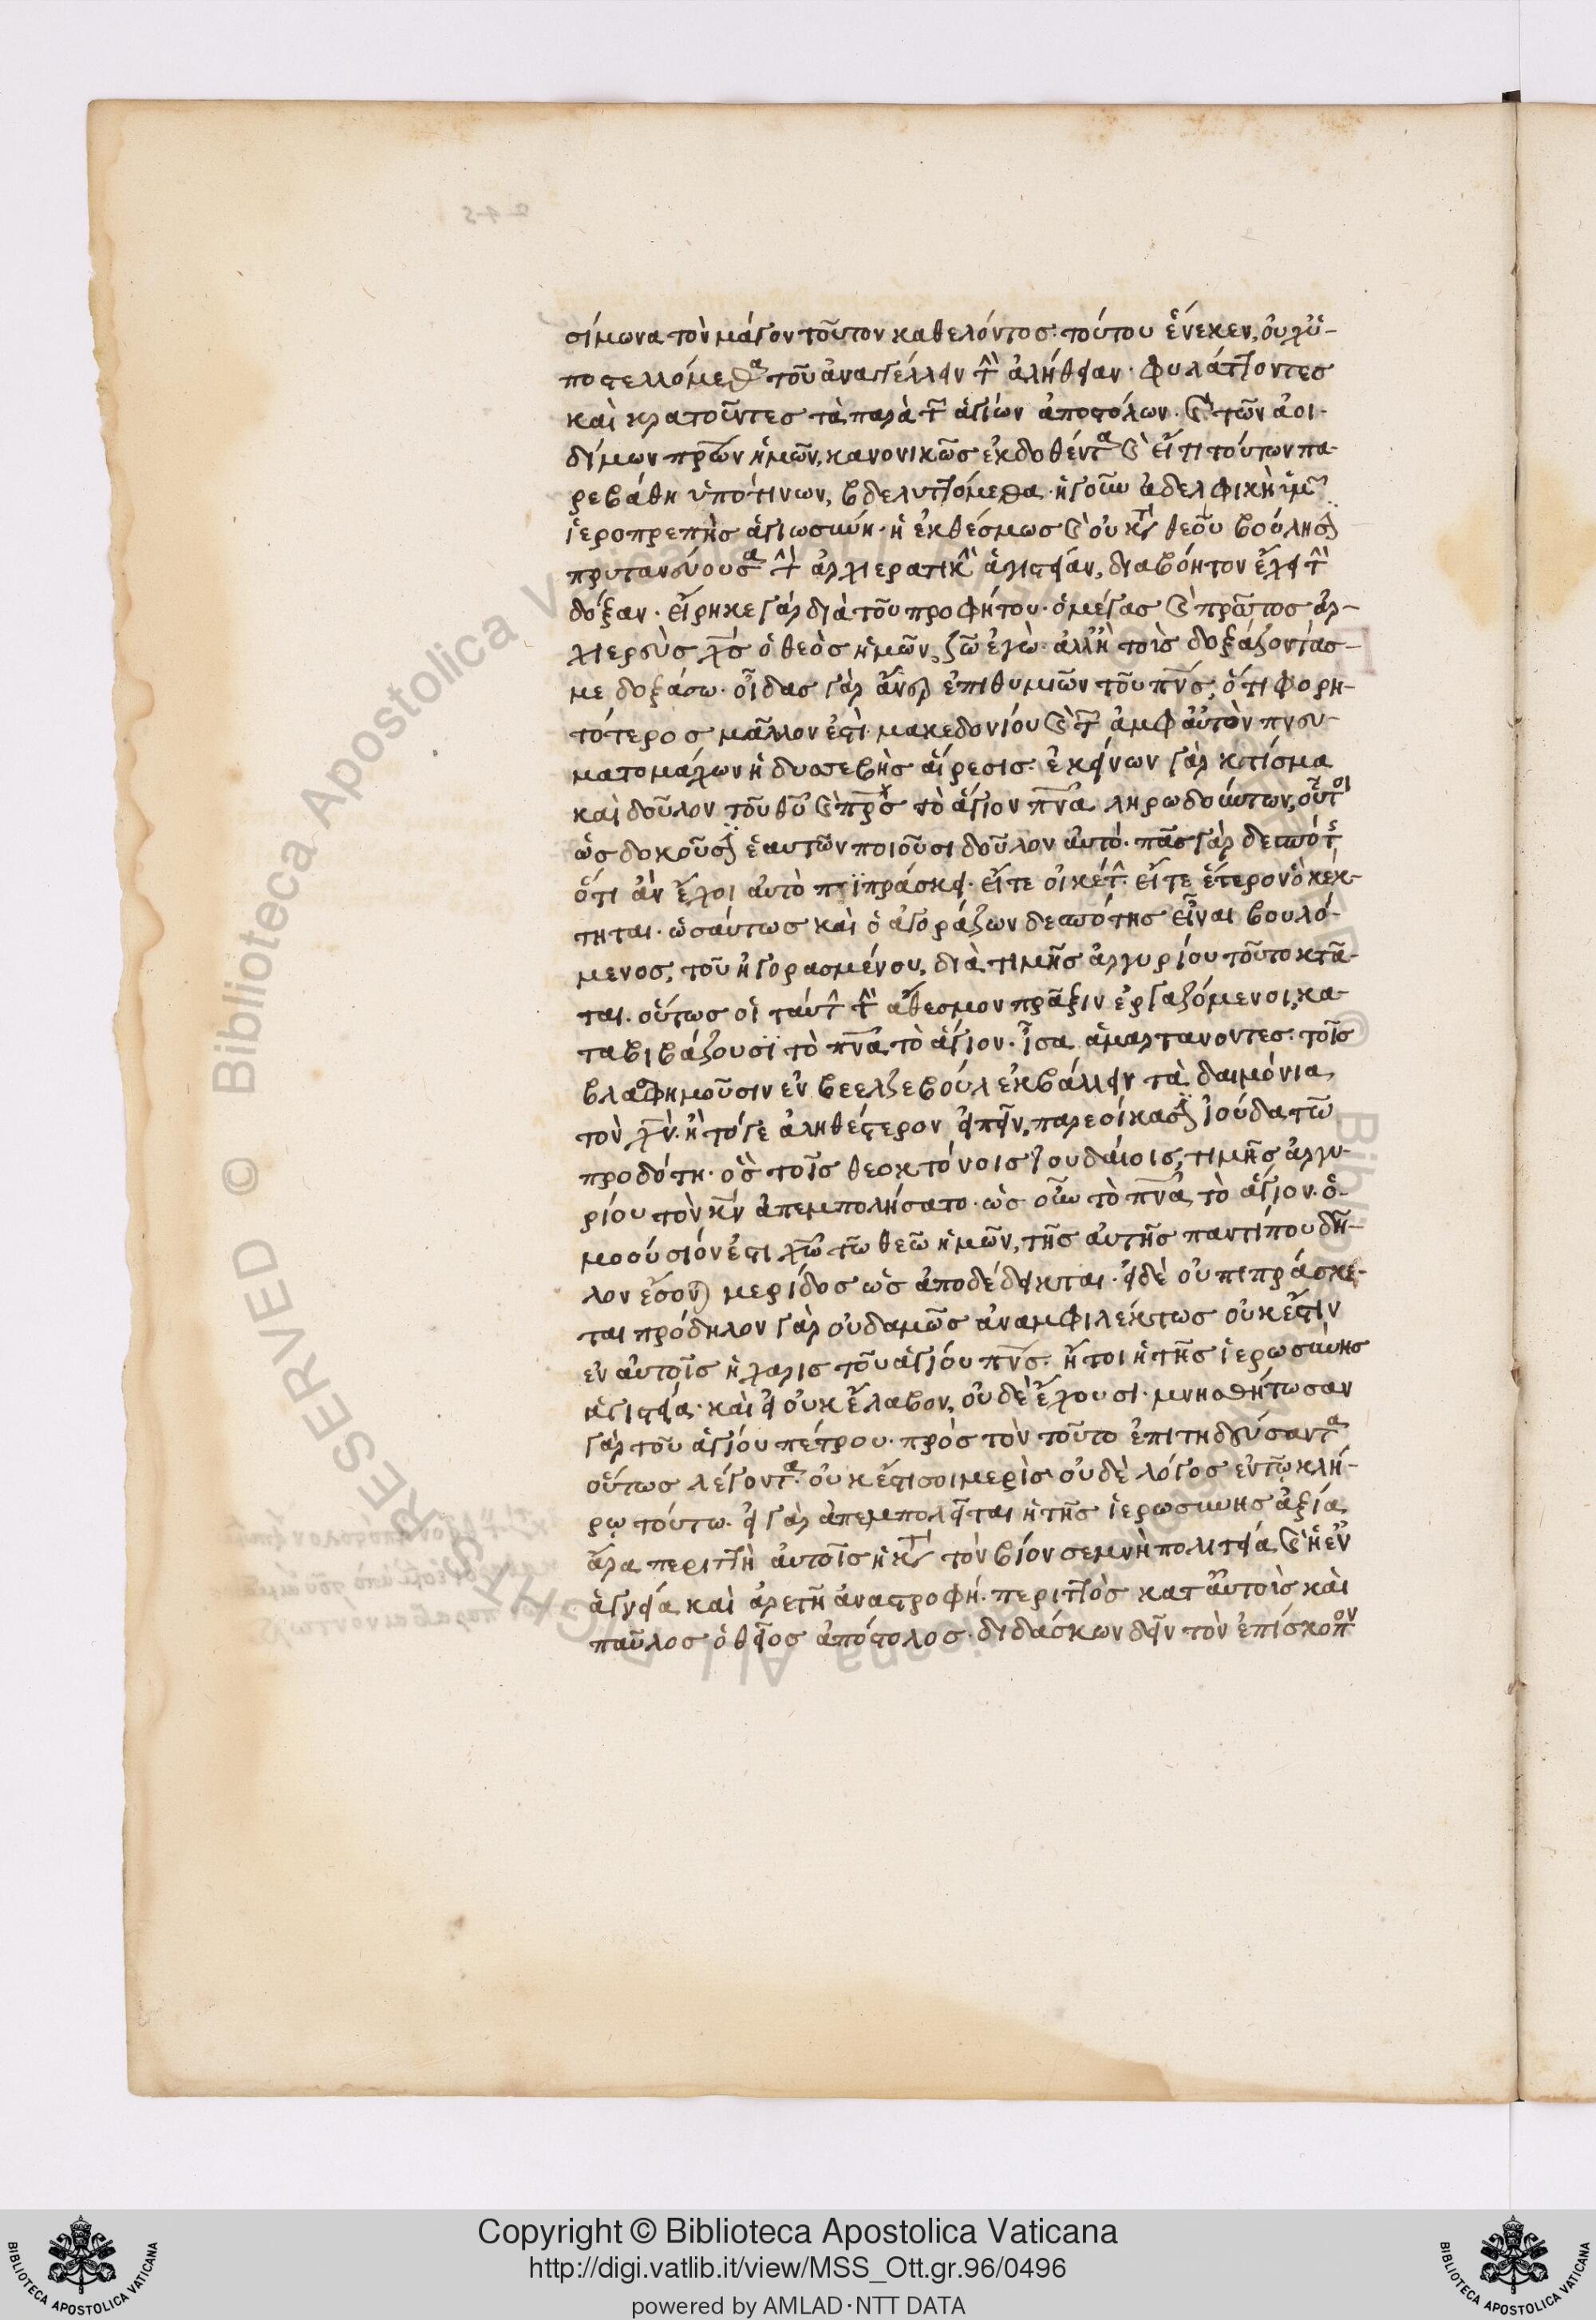 σίμωνα τὸν μάγον τοῦτον καθελόντος· τούτου ἕνεκεν, οὐχ ὑ-
ποστελλόμεθα τοῦ ἀναγγέλλειν τὴν ἀλήθειαν· φυλάττοντες
καὶ κρατοῦντες τὰ παρὰ τῶν ἁγίων ἀποστόλων· καὶ τῶν ἀοι-
δίμων πρων ἡμῶν, κανονικῶς ἐκδοθέντα καὶ εἴ τι τούτων πα-
ρεβάθη ὑπό τινων, βδελυττόμεθα· ἡ γοῦν ἀδελφικὴ ὑμῶν
ἱεροπρεπὴς ἁγιωσύνη· ἡ ἐκθέσμως καὶ οὐ κατὰ θεοῦ βούλησιν
πρυτανεύουσα τὴν ἀρχιερατικὴν ἁγιστείαν, διαβόητον ἔχει τὴν
δόξαν· εἴρηκε γὰρ διὰ τοῦ προφήτου· ὁ μέγας καὶ πρῶτος ἀρ-
χιερεὺς χς ὁ θεὸς ἡμῶν, ζῶ ἐγὼ· ἀλλ' ἢ τοὺς δοξάζοντάς
με δοξάσω· οἶδας γὰρ ἄνερ ἐπιθυμιῶν τοῦ πνς, ὅτι φορη-
τότερος μᾶλλον ἐστὶ μακεδονίου καὶ τῶν ἀμφ αὐτὸν πνευ-
ματομάχων ἡ δυσσεβὴς αἵρεσις· ἐκείνων γὰρ κτίσμα
καὶ δοῦλον τοῦ θυ καὶ πρς τὸ ἅγιον πνα ληρωδούντων, οὗτοι
ὡς δοκοῦσιν ἑαυτῶν ποιοῦσι δοῦλον αὐτό· πᾶς γὰρ δεσπότης
ὅτι ἂν ἔχοι αὐτὸ πιπράσκει· εἴτε οἰκέτην· εἴτε ἕτερον ὃ κέκ-
τηται· ὡσαύτως καὶ ὁ ἀγοράζων δεσπότης εἶναι βουλό-
μενος, τοῦ ἠγορασμένου, διὰ τιμῆς ἀργυρίου τοῦτο κτᾶ-
ται. οὕτως οἱ ταύτην τὴν ἄθεσμον πρᾶξιν ἐργαζόμενοι, κα-
ταβιβάζουσι τὸ πνα τὸ ἅγιον· ἶσα ἁμαρτάνοντες· τοῖς
βλασφημοῦσιν ἐν βεελζεβοὺλ ἐκβάλλειν τὰ δαιμόνια
τὸν χν· ἢ τό γε ἀληθέστερον εἰπεῖν, παρεοίκασιν ἰούδα τῶ
προδότη· ὃς τοῖς θεοκτόνοις ἰουδαίοις, τιμῆς ἀργυ-
ρίου τὸν κν ἀπεμπολήσατο· ὡς οὖν τὸ πνα τὸ ἅγιον· ὁ-
μοούσιόν ἐστι χω τῶ θεῶ ἡμῶν, τῆς αὐτῆς παντί που δῆ-
λον ἔσονται μερίδος ὡς ἀποδέδεικται· εἰ δὲ οὐ πιπράσκε-
ται πρόδηλον γὰρ οὐδαμῶς ἀναμφιλέκτως οὐκ ἔστιν
ἐν αὐτοῖς ἡ χάρις τοῦ ἁγίου πνς· ἤτοι ἡ τῆς ἱερωσύνης
ἁγιστεία· καὶ εἰ οὐκ ἔλαβον, οὐδὲ ἔχουσι· μνησθήτωσαν
γὰρ τοῦ ἁγίου πέτρου· πρὸς τὸν τοῦτο ἐπιτηδεύσαντα
οὕτως λέγοντα· οὐκ ἔστι σοι μερὶς οὐδὲ λόγος ἐν τῷ κλή-
ρῳ τούτω· εἰ γὰρ ἀπεμπολεῖται ἡ τῆς ἱερωσύνης ἀξία
ἄρα περιττὴ αὐτοῖς ἡ κατὰ τὸν βίον σεμνὴ πολιτεία καὶ ἡ ἐν
ἁγνεία καὶ ἀρετῆ ἀναστροφή· περιττὸς κατ αὐτοὺς καὶ
παῦλος ὁ θεῖος ἀπόστολος· διδάσκων δεῖν τὸν ἐπίσκοπον
Copyright © Biblioteca Apostolica Vaticana
http://digi.vatlib.it/view/MSS_Ott.gr.96/0496
powered by AMLAD·NTT DATA